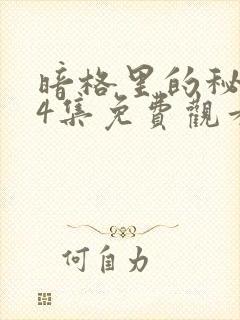 暗格里的秘
4集免費觀看
何自力